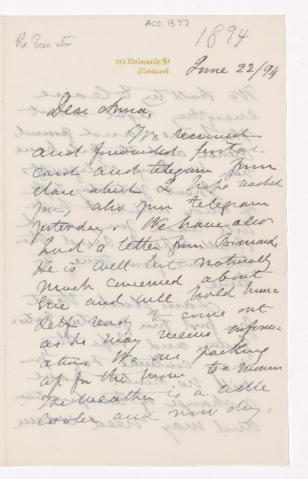 ACC. 1377
1894
Re Eric etc
772 University St
Montreal.
June 22/94
Dear Anna,
We received
and forwarded postal
card and telegram from
Clare which I hope reached
you, also your telegram
yesterday. We have also
had a letter from Bernard.
He is well but naturally
much concerned about
Eric and will hold him-
self ready to come out
as he may receive inform-
ation. We are packing
up for the move
The weather is a little
cooler and now dry.